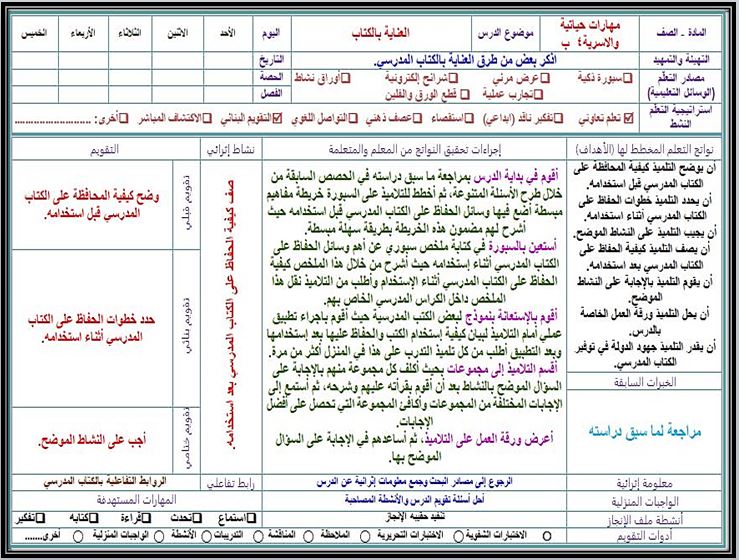 المادة - الصف
مهارات حياتية والاسرية٤ ب
موضوع الدرس
العناية بالكتاب
اليوم
الأحد
الاثنين
الثلاثاء
الأربعاء
الخميس
التهيئة والتمهيد
اذكر بعض من طرق العناية بالكتاب المدرسي.
التاريخ
مصادر التعلم
(الوسائل التعليمية)
سبورة ذكية
عرض مرئي
شرائح إلكترونية
أوراق نشاط
تجارب عملية
قطع الورق والفلين
الحصة
الفصل
استراتيجية التعلم
النشط
تعلم تعاوني
تفكير ناقد (ابداعي)
استقصاء
عصف ذهني
التواصل اللغوي
التقويم البنائي
الاكتشاف المباشر
أخرى: .........................
نواتج التعلم المخطط لها (الأهداف)
إجراءات تحقيق النواتج من المعلم والمتعلمة
نشاط إثرائي
التقويم
أن يوضح التلميذ كيفية المحافظة على
الكتاب المدرسي قبل استخدامه.
أن يحدد التلميذ خطوات الحفاظ على
الكتاب المدرسي أثناء استخدامه.
أن يجيب التلميذ على النشاط الموضح.
أن يصف التلميذ كيفية الحفاظ على
الكتاب المدرسي بعد استخدامه.
أن يقوم التلميذ بالإجابة على النشاط
الموضح.
أن يحل التلميذ ورقة العمل الخاصة
بالدرس.
أن يقدر التلميذ جهود الدولة في توفير
الكتاب المدرسي.
الخبرات السابقة
مراجعة لما سبق دراسته
أقوم في بداية الدرس بمراجعة ما سبق دراسته في الحصص السابقة من
خلال طرح الأسئلة المتنوعة، ثم أخطط للتلاميذ على السبورة خريطة مفاهيم
مبسطة أضع فيها وسائل الحفاظ على الكتاب المدرسي قبل استخدامه حيث
أشرح لهم مضمون هذه الخريطة بطريقة سهلة مبسطة.
أستعين بالسبورة في كتابة ملخص سبوري عن أهم وسائل الحفاظ على
الكتاب المدرسي أثناء إستخدامه حيث أشرح من خلال هذا الملخص كيفية
الحفاظ على الكتاب المدرسي أثناء الإستخدام وأطلب من التلاميذ نقل هذا
الملخص داخل الكراس المدرسي الخاص بهم.
أقوم بالإستعانة بنموذج لبعض الكتب المدرسية حيث أقوم بإجراء تطبيق
عملي أمام التلاميذ لبيان كيفية إستخدام الكتب والحفاظ عليها بعد إستخدامها
وبعد التطبيق أطلب من كل تلميذ التدرب على هذا في المنزل أكثر من مرة.
أقسم التلاميذ إلى مجموعات بحيث أكلف كل مجموعة منهم بالإجابة على
السؤال الموضح بالنشاط بعد أن أقوم بقرأته عليهم وشرحه، ثم أستمع إلى
الإجابات المختلفة من المجموعات وأكافئ المجموعة التي تحصل على أفضل
الإجابات.
أعرض ورقة العمل على التلاميذ، ثم أساعدهم في الإجابة على السؤال
الموضح بها.
صف كيفية الحفاظ على الكتاب المدرسي بعد استخدامه.
تقويم قبلي
وضح كيفية المحافظة على الكتاب
المدرسي قبل استخدامه.
تقويم بنائي
حدد خطوات الحفاظ على الكتاب
المدرسي أثناء استخدامه.
تقويم ختامي
أجب على النشاط الموضح.
معلومة إثرائية
الرجوع إلى مصادر البحث وجمع معلومات إثرائية عن الدرس
رابط تفاعلي
الروابط التفاعلية بالكتاب المدرسي
الواجبات المنزلية
أحل أسئلة تقويم الدرس والأنشطة المصاحبة
المهارات المستهدفة
أنشطة ملف الإنجاز
تنفيذ حقيبه الإنجاز
استماع
تحدث
قراءة
كتابه
تفكير
أدوات التقويم
الاختبارات الشفوية
الاختبارات التحريرية
الملاحظة
المناقشة
التدريبات
الأنشطة
الواجبات المنزلية
أخرى......